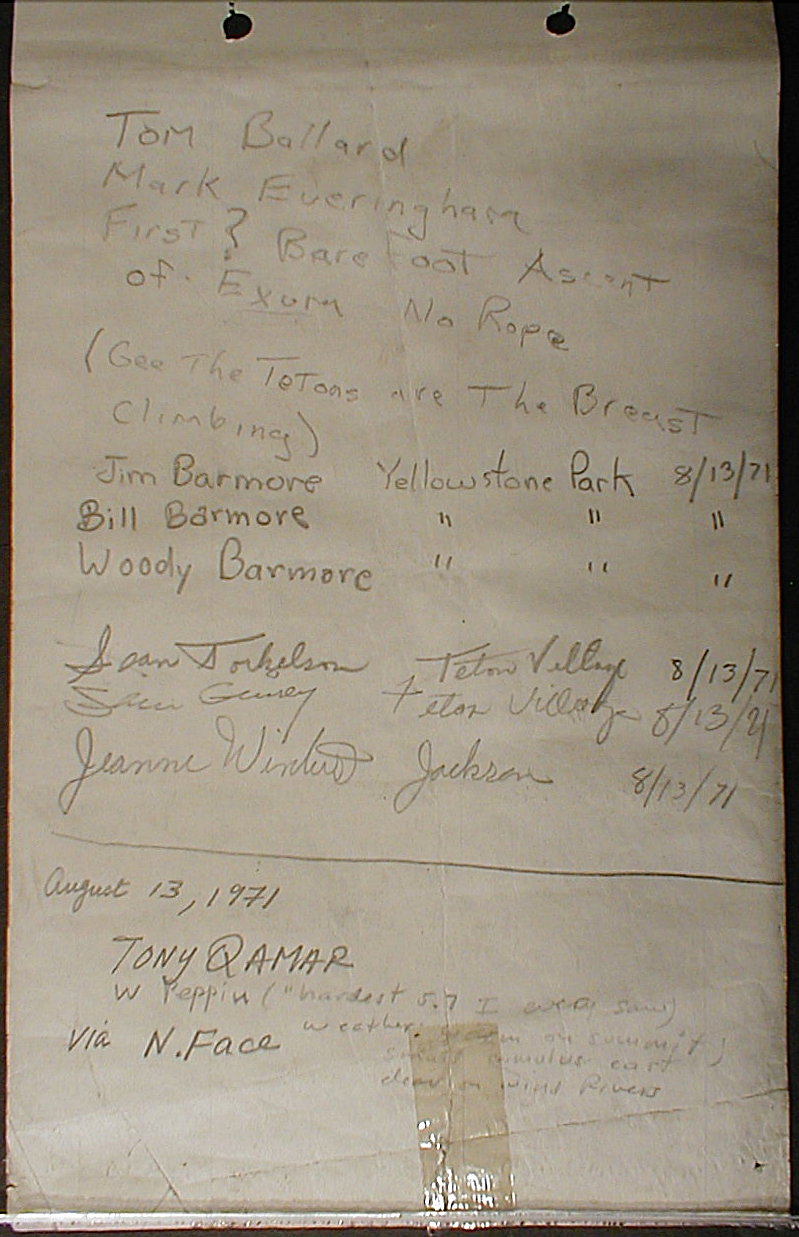 Tom Ballard
Mark Everingham
First ? Bare Foot Ascent
of Exum No Rope
(Gee The Tetons are The Breast
Climbing)
Jim Barmore Yellowstone Park 8/13/71
Bill Barmore " " "
Woody Barmore " " "
Torkelson Teton Village 8/13/71
Teton Village 8/13/71
Jeanne Jackson 8/13/71
August 13, 1971
TONY QAMAR
W Peppin ("hardest 5.7 I ever saw)
via N. Face
weather: warm on summit,
small cumulus east
clear on Wind Rivers